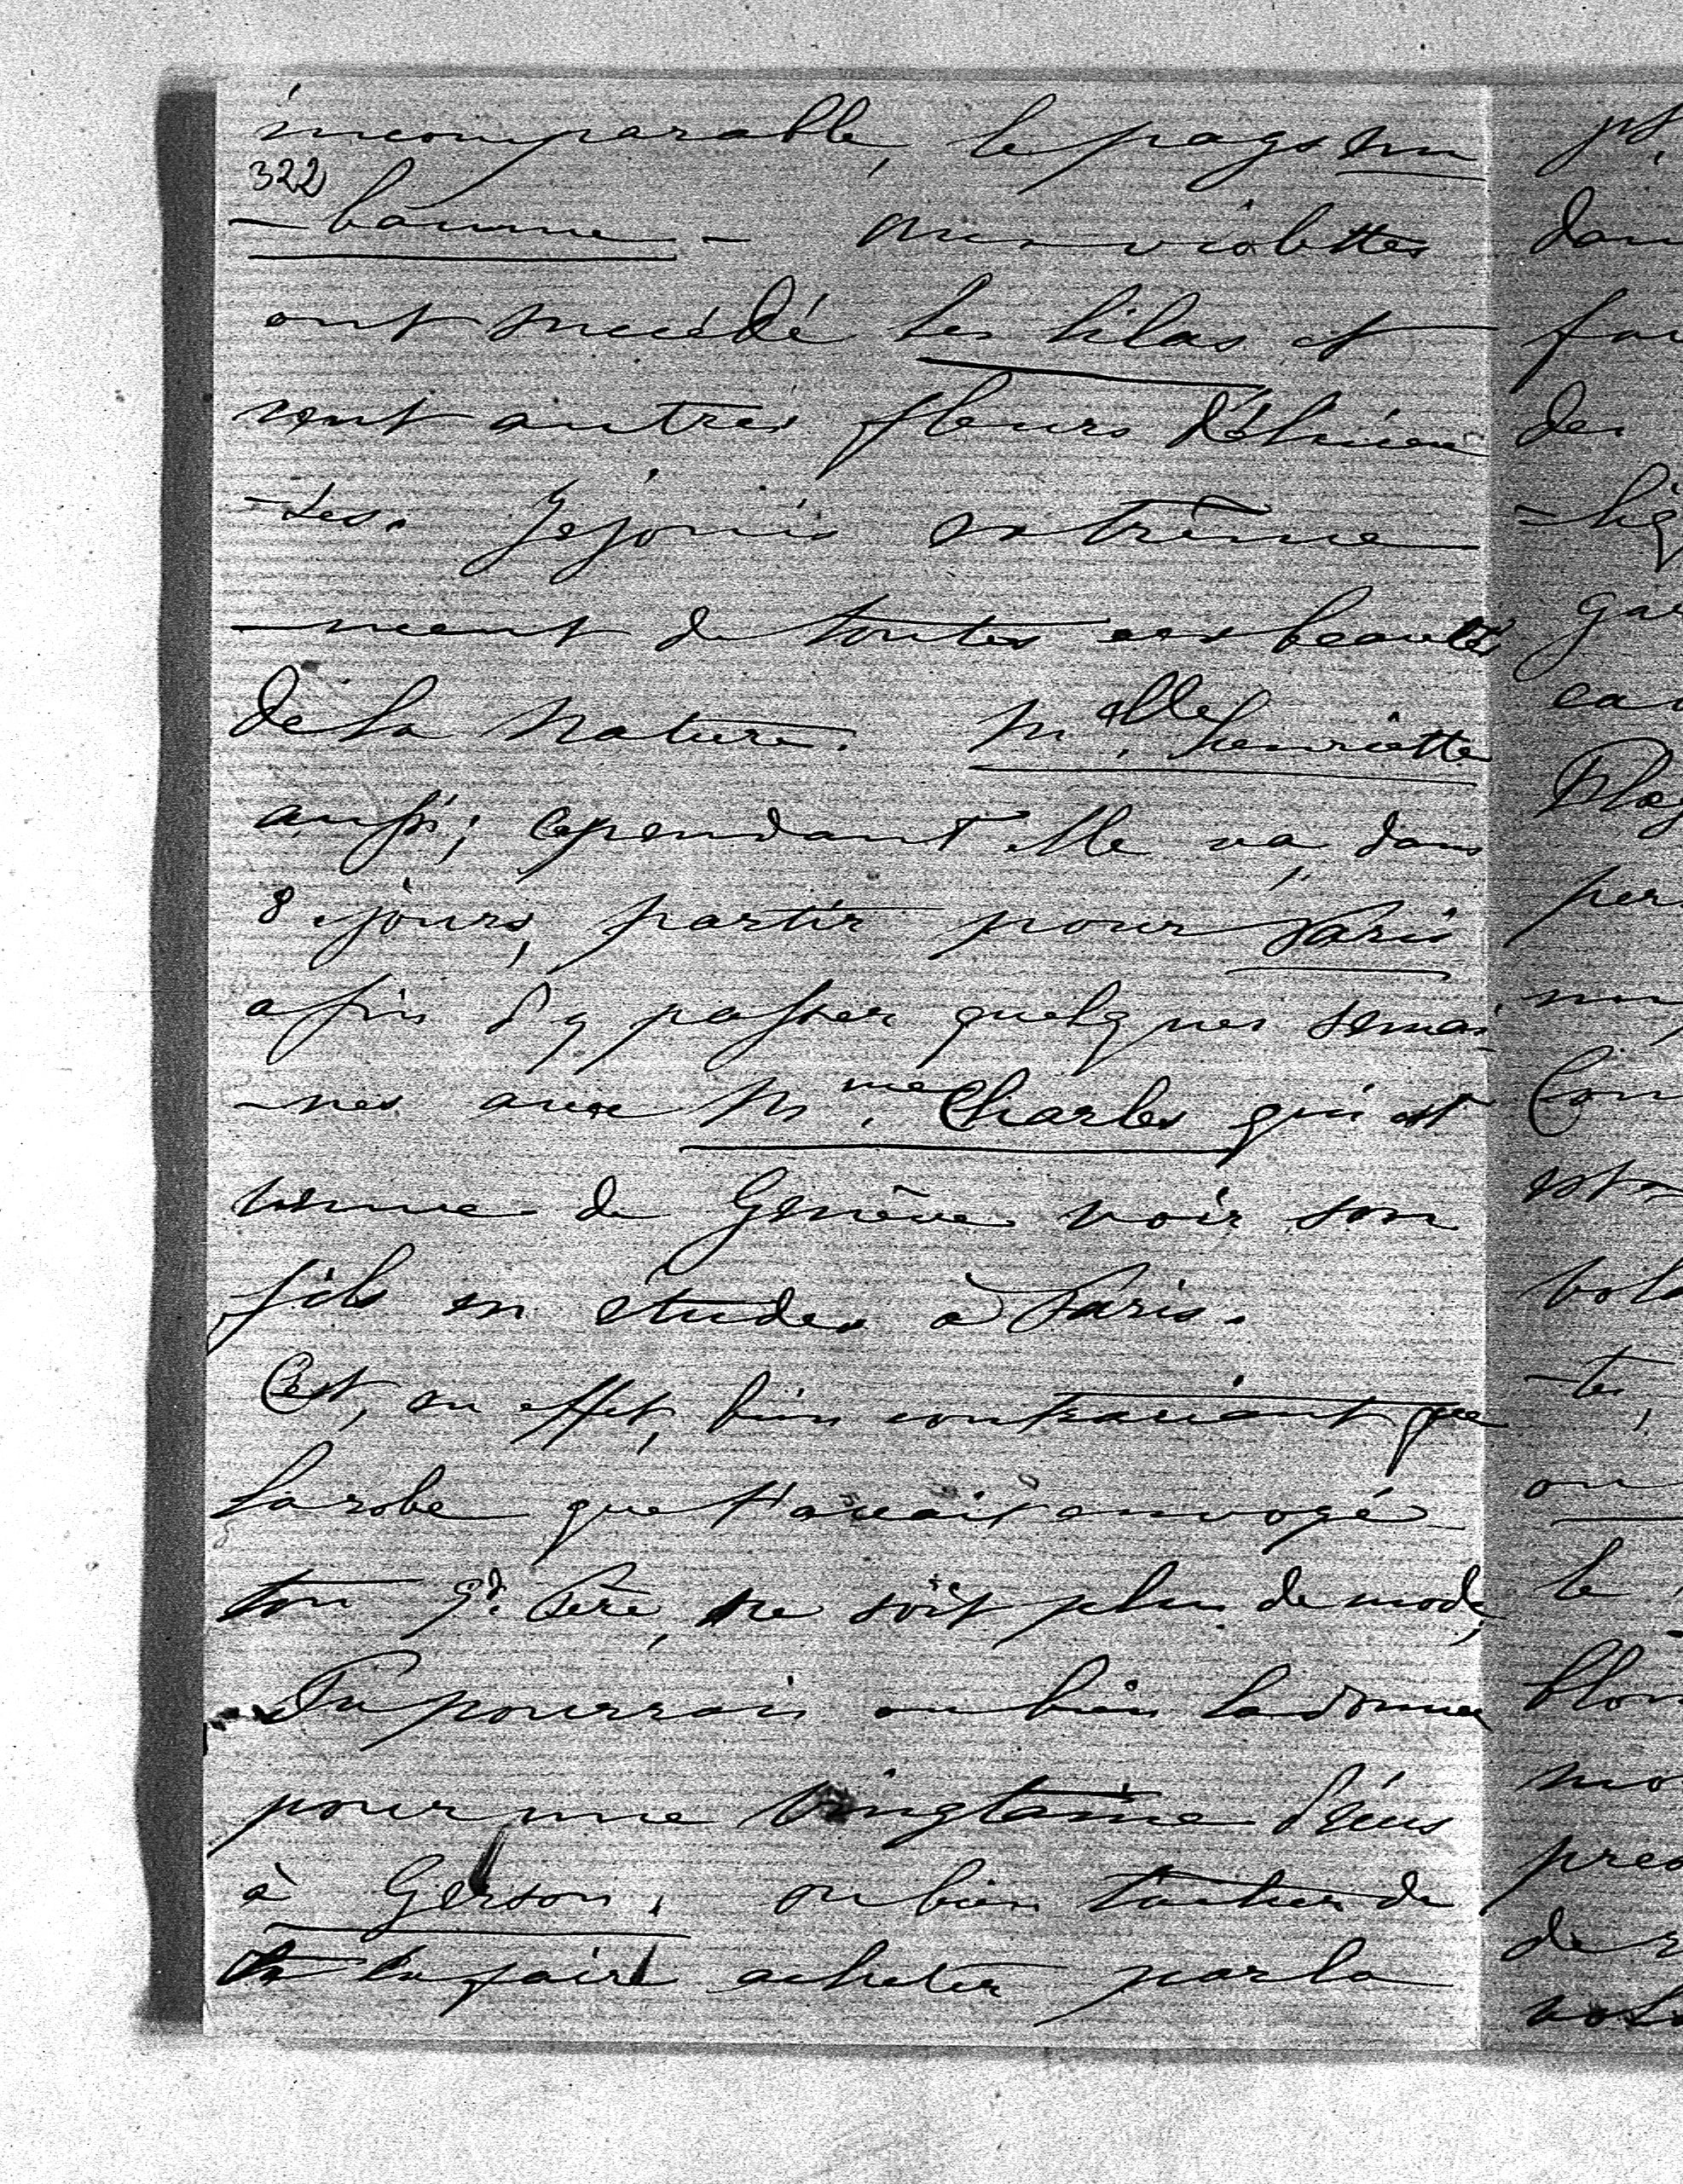 incomparable, le pays em
322
-baume - aux violettes
ont succédé les lilas et
cent autres fleurs d'élicieu
-ses. Je jouis extrême
-ment de toutes ces beautés
de la Nature. M.elle henriette
aussi; cependant elle va, dans
8 jours, partir pour Paris
afin d'y passer quelques semai
-nes avec M.me Charles qui est
venue de Genève voir son
fils en études à Paris.
C'est, en effet, bien contrariant que
la robe que t'avait envoyé
ton gd. Père, ne soit plus de mode,
Tu pourrais ou bien la donner
pour une vingtaine d'écus
à Gerson. ou bien tacher de
la faire acheter par la
dans
des
-lig
gar
est
-tes,
ou
le
de